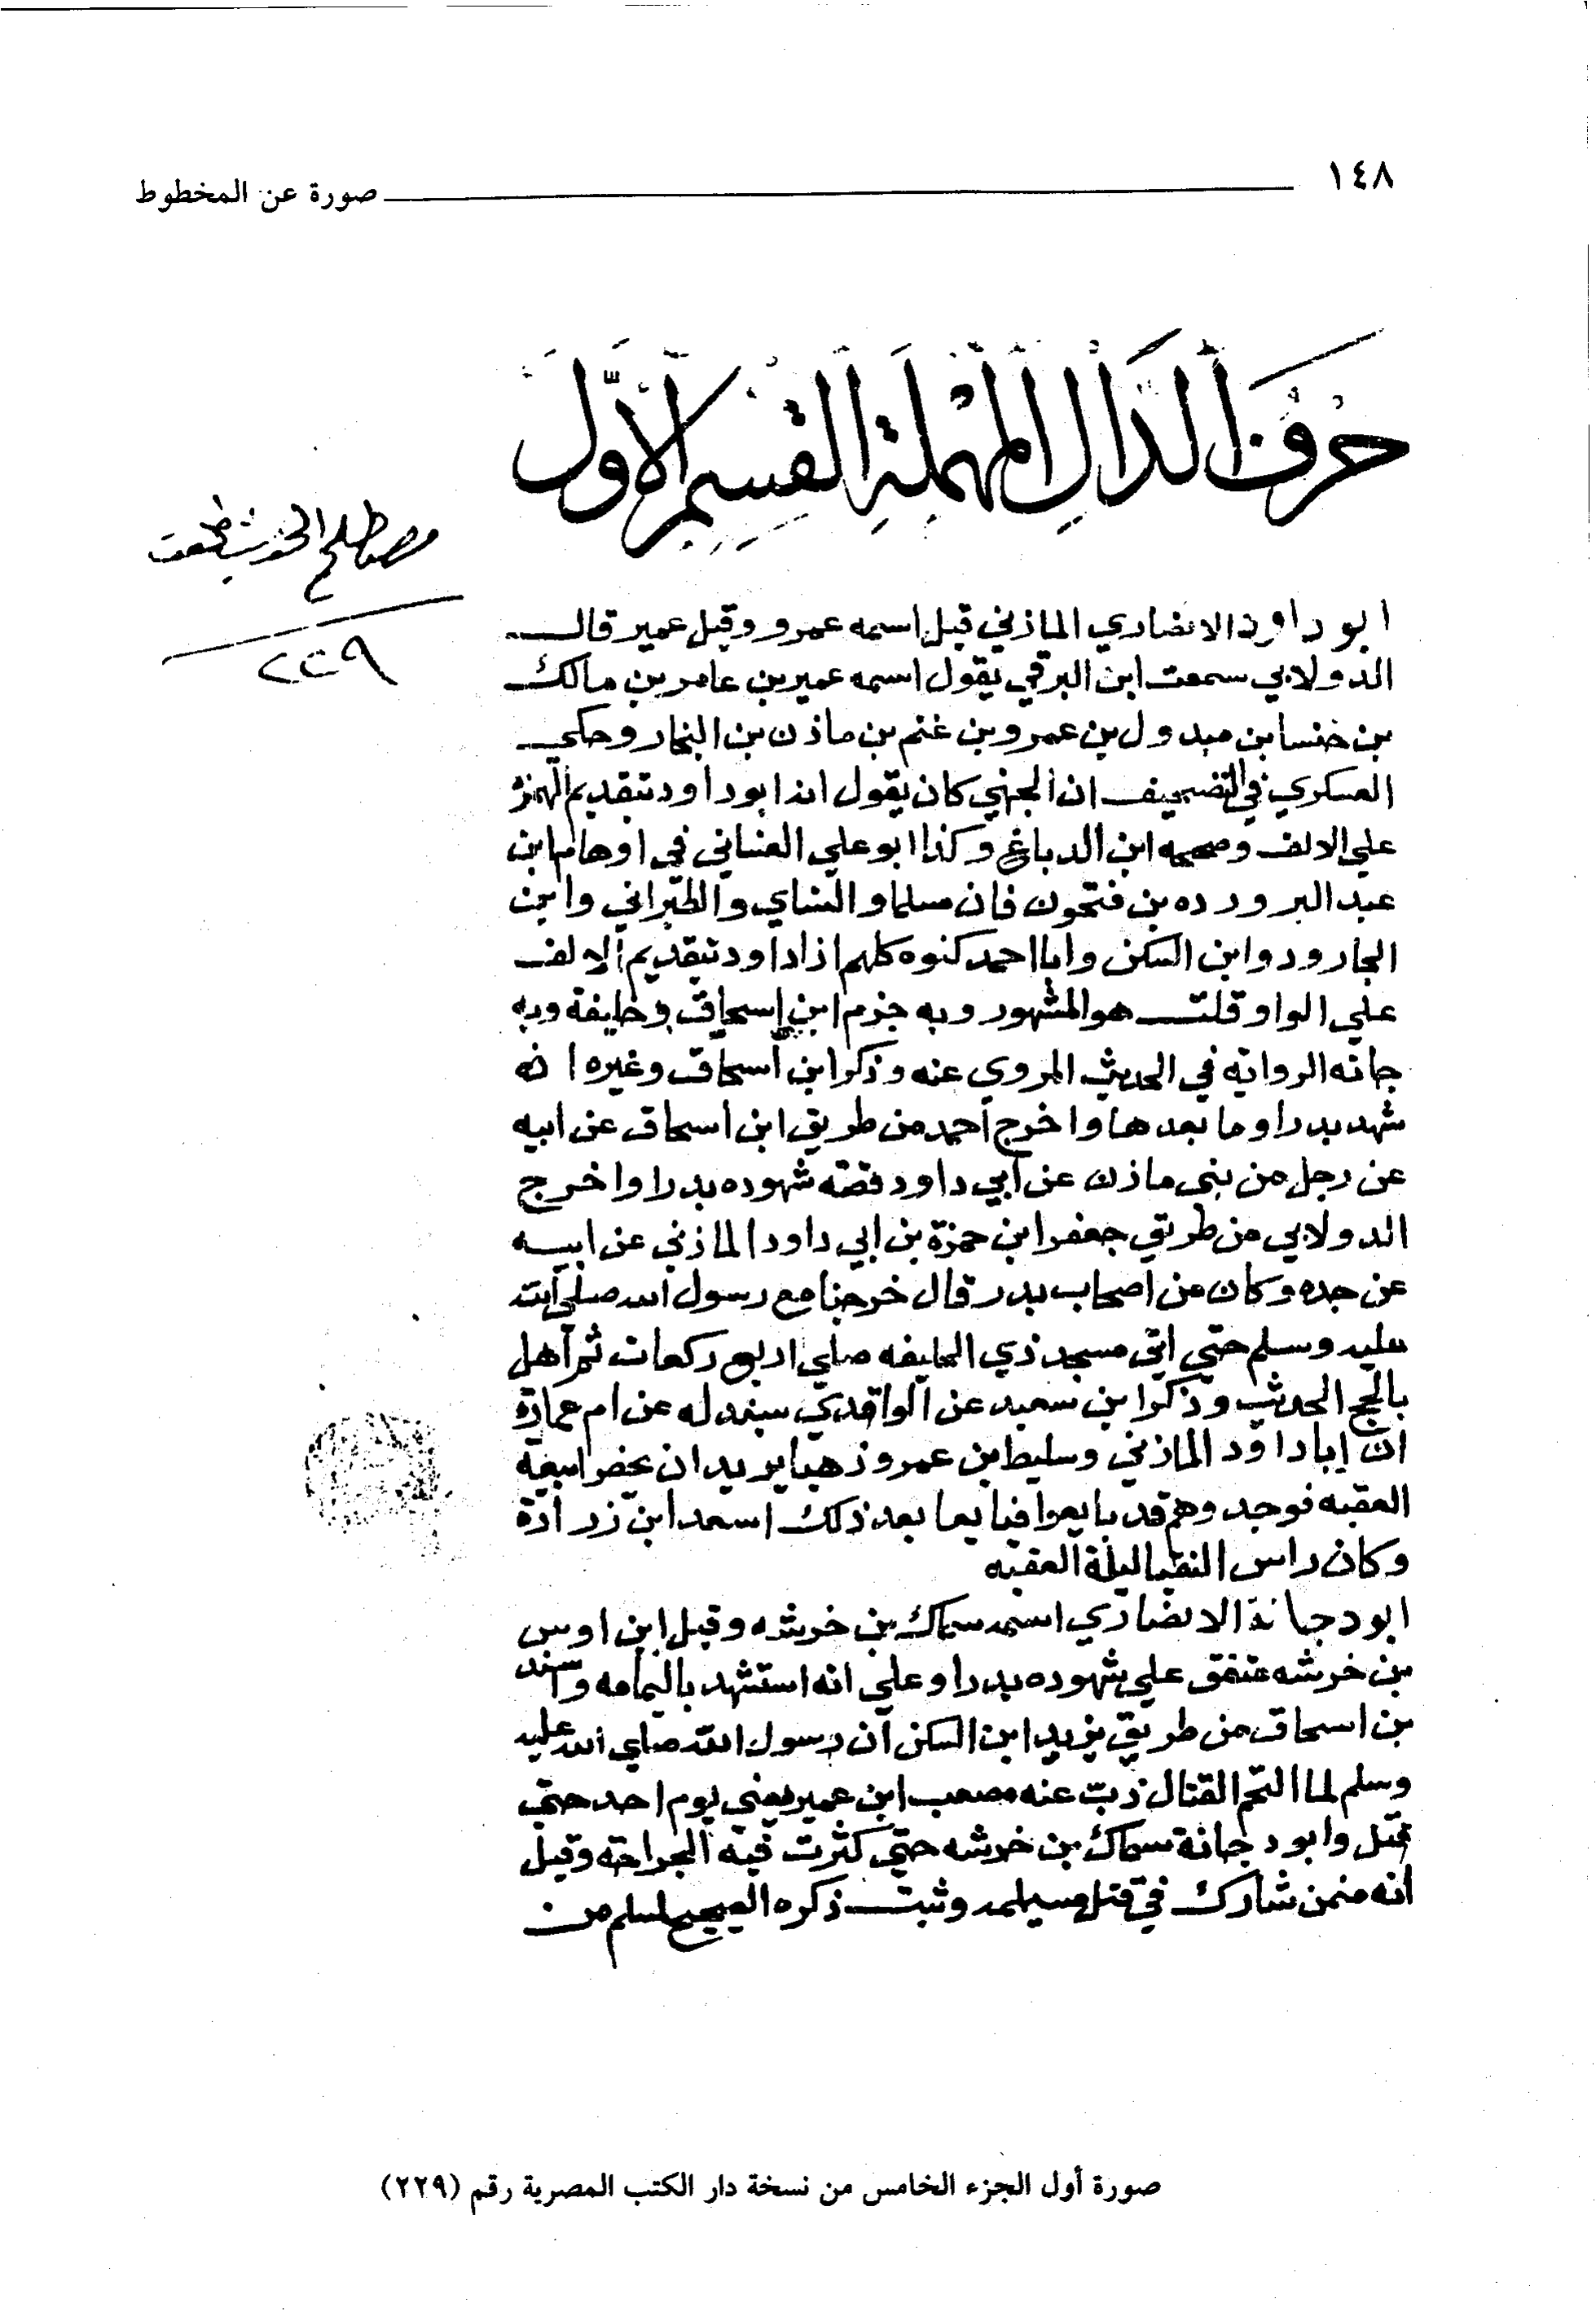 ١٤٨ صورة عن المخطوط
حرف الدال المهملة القسم الأول
مصطلح الحديث طلعت
٢٢٩
ابو داود الانصاري المازني قيل اسمه عمرو وقيل عمير قال
الدولابي سمعت ابن البرقي يقول اسمه عمير بن عامر بن مالك
بن خنسا بن مبدول بن عمرو بن غنم بن ماذن بن النجار وحكي
العسكري في التصحيف ان الجهني كان يقول انه ابو دا ود بتقديم الهمزة
علي الالف وصححه ابن الدباغ وكذا ابو علي الغساني في اوهام ابن
عبد البر ورده بن فتحون فان مسلما والنساي والطبراني وابن
الجارود وابن السكن وابا احمد كنوه كلهم اذا داود بتقديم الالف
علي الواو قلت هو المشهور وبه جزم ابن إسحاق وخليفة وبه
جاته الرواية في الحديث المروي عنه وذكر ابن اسحاق وغيره انه
شهد بدرا وما بعدها واخرج احمد من طريق ابن اسحاق عن ابيه
عن رجل من بني ماذن عن أبي داود قصة شهوده بدرا واخرج
الدولابي من طريق جعفر ابن حمزة بن ابي داود المازني عن ابيه
عن جده وكان من اصحاب بدر قال خرجنا مع رسول الله صلي الله
عليه وسلم حتي اتي مسجد ذي الحليفه صلي اربع ركعات ثم أهل
بالحج الحديث وذكر ابن سعيد عن الواقدي بسند له عن ام عمارة
ان ابا داود المازني وسليط بن عمرو ذهبا يريدان يحضرا بيعة
العقبه فوجد وهم قد بايعوا فبايعا بعد ذلك اسعد ابن زرارة
وكان راس النقبا ليلة العقبه
ابو دجانة الانصاري اسمه سماك بن خرشه وقيل ابن اوس
بن خرشه متفق علي شهوده بدرا وعلي انه استشهد باليمامه واسند
بن اسحاق من طريق يزيد ابن السكن ان رسول الله صلي الله عليه
وسلم لما التحم القتال ذب عنه مصعب ابن عمير يعني يوم احد حتي
قتل وابو دجانة سماك بن خرشه حتي كثرت فيه الجراحة وقيل
انه ممن شارك في قتل مسيلمه وثبت ذكره الصحيح لمسلم من
صورة أول الجزء الخامس من نسخة دار الكتب المصرية رقم (٢٢٩)